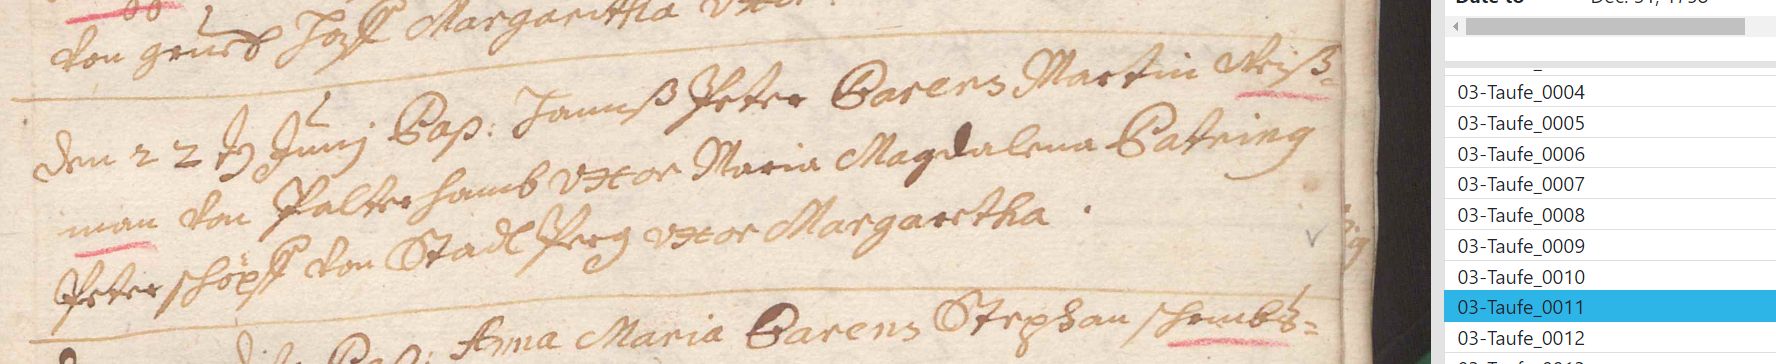 von grueb Jos: Margaritha Uxor.
den 22 dj Junij Bap: Jannß Peter Parens Martin Weiß=
man von Palterhamb Uxor Maria Magdalena Patring
Peter schöpff von Stadl Perg Uxor Margaretha.
Bap: Anna Maria Parens Stephan schmbß=
03-Taufe_0004
03-Taufe_0005
03-Taufe_0006
03-Taufe_0007
03-Taufe_0008
03-Taufe_0009
03-Taufe_0010
03-Taufe_0011
03-Taufe_0012